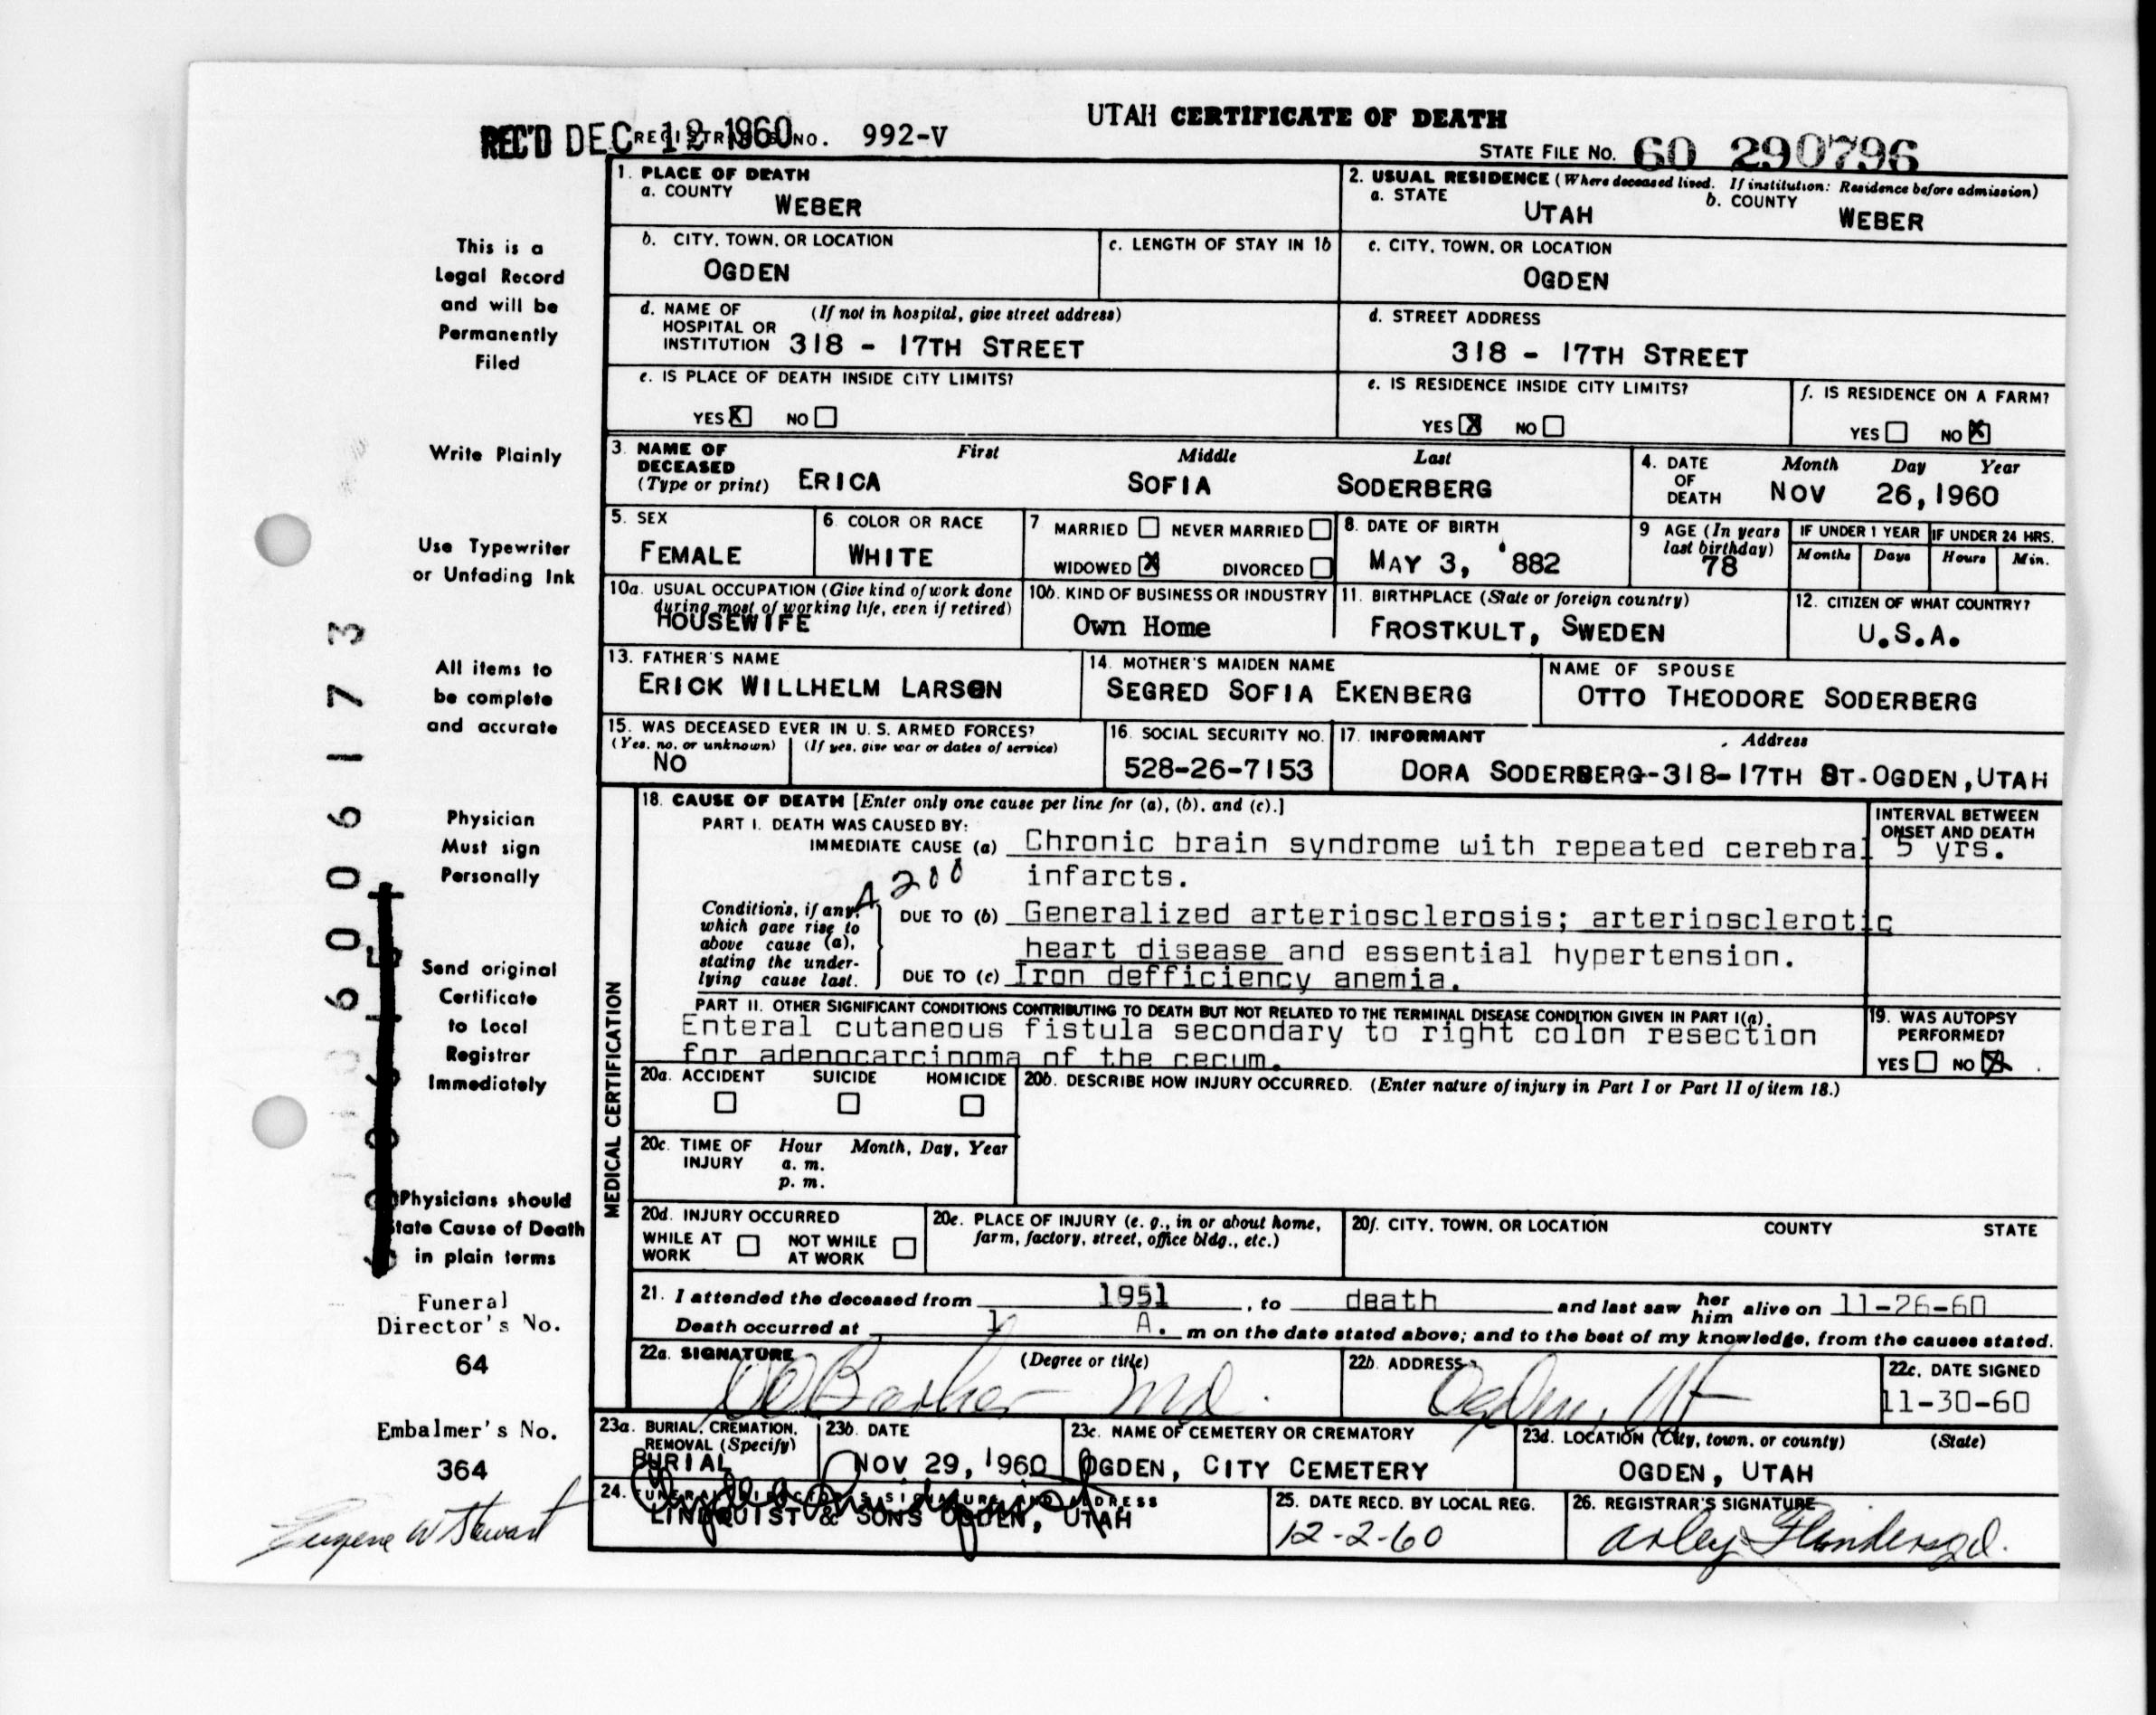 UTAH CERTIFICATE OF DEATH
REC'D DEC 12 1960 REGISTRAR'S NO. 992-V
STATE FILE NO. 60 290796
1. PLACE OF DEATH
a. COUNTY
WEBER
2. USUAL RESIDENCE (Where deceased lived. If institution: Residence before admission)
a. STATE b. COUNTY
UTAH WEBER
b. CITY, TOWN, OR LOCATION
OGDEN
c. LENGTH OF STAY IN 1b
c. CITY, TOWN, OR LOCATION
OGDEN
d. NAME OF HOSPITAL OR INSTITUTION (If not in hospital, give street address)
318 - 17TH STREET
d. STREET ADDRESS
318 - 17TH STREET
e. IS PLACE OF DEATH INSIDE CITY LIMITS?
YES X NO
e. IS RESIDENCE INSIDE CITY LIMITS?
YES X NO
f. IS RESIDENCE ON A FARM?
YES NO X
3. NAME OF DECEASED (Type or print) First Middle Last
ERICA SOFIA SODERBERG
4. DATE OF DEATH Month Day Year
NOV 26, 1960
5. SEX
FEMALE
6. COLOR OR RACE
WHITE
7 MARRIED NEVER MARRIED
WIDOWED X DIVORCED
8. DATE OF BIRTH
MAY 3, '882
9 AGE (In years last birthday)
78
IF UNDER 1 YEAR IF UNDER 24 HRS.
Months Days Hours Min.
10a. USUAL OCCUPATION (Give kind of work done during most of working life, even if retired)
HOUSEWIFE
10b. KIND OF BUSINESS OR INDUSTRY
Own Home
11. BIRTHPLACE (State or foreign country)
FROSTKULT, SWEDEN
12. CITIZEN OF WHAT COUNTRY?
U.S.A.
13. FATHER'S NAME
ERICK WILLHELM LARSON
14. MOTHER'S MAIDEN NAME
SEGRED SOFIA EKENBERG
NAME OF SPOUSE
OTTO THEODORE SODERBERG
15. WAS DECEASED EVER IN U. S. ARMED FORCES?
(Yes, no, or unknown) (If yes, give war or dates of service)
NO
16. SOCIAL SECURITY NO.
528-26-7153
17. INFORMANT Address
DORA SODERBERG-318-17TH ST-OGDEN,UTAH
MEDICAL CERTIFICATION
18. CAUSE OF DEATH [Enter only one cause per line for (a), (b), and (c).]
INTERVAL BETWEEN ONSET AND DEATH
PART I. DEATH WAS CAUSED BY:
IMMEDIATE CAUSE (a) Chronic brain syndrome with repeated cerebral 5 yrs.
infarcts.
4200
Conditions, if any, which gave rise to above cause (a), stating the underlying cause last.
DUE TO (b) Generalized arteriosclerosis; arteriosclerotic
heart disease and essential hypertension.
DUE TO (c) Iron defficiency anemia.
PART II. OTHER SIGNIFICANT CONDITIONS CONTRIBUTING TO DEATH BUT NOT RELATED TO THE TERMINAL DISEASE CONDITION GIVEN IN PART I(a)
Enteral cutaneous fistula secondary to right colon resection
for adenocarcinoma of the cecum.
19. WAS AUTOPSY PERFORMED?
YES NO X
20a. ACCIDENT SUICIDE HOMICIDE
20b. DESCRIBE HOW INJURY OCCURRED. (Enter nature of injury in Part I or Part II of item 18.)
20c. TIME OF INJURY Hour Month, Day, Year
a. m.
p. m.
20d. INJURY OCCURRED
WHILE AT WORK NOT WHILE AT WORK
20e. PLACE OF INJURY (e. g., in or about home, farm, factory, street, office bldg., etc.)
20f. CITY, TOWN, OR LOCATION COUNTY STATE
21. I attended the deceased from 1951, to death and last saw her him alive on 11-26-60
Death occurred at 1 A. m on the date stated above; and to the best of my knowledge, from the causes stated.
22a. SIGNATURE (Degree or title)
Barker MD.
22b. ADDRESS
Ogden, Ut
22c. DATE SIGNED
11-30-60
23a. BURIAL, CREMATION, REMOVAL (Specify)
BURIAL
23b. DATE
NOV 29, 1960
23c. NAME OF CEMETERY OR CREMATORY
OGDEN, CITY CEMETERY
23d. LOCATION (City, town, or county) (State)
OGDEN, UTAH
24. FUNERAL DIRECTOR'S SIGNATURE AND ADDRESS
LINDQUIST & SONS OGDEN, UTAH
25. DATE RECD. BY LOCAL REG.
12-2-60
26. REGISTRAR'S SIGNATURE
Arley Flinders
This is a
Legal Record
and will be
Permanently
Filed
Write Plainly
Use Typewriter
or Unfading Ink
All items to
be complete
and accurate
Physician
Must sign
Personally
Send original
Certificate
to Local
Registrar
Immediately
Physicians should
State Cause of Death
in plain terms
Funeral
Director's No.
64
Embalmer's No.
364
Eugene W Stewart
6006173